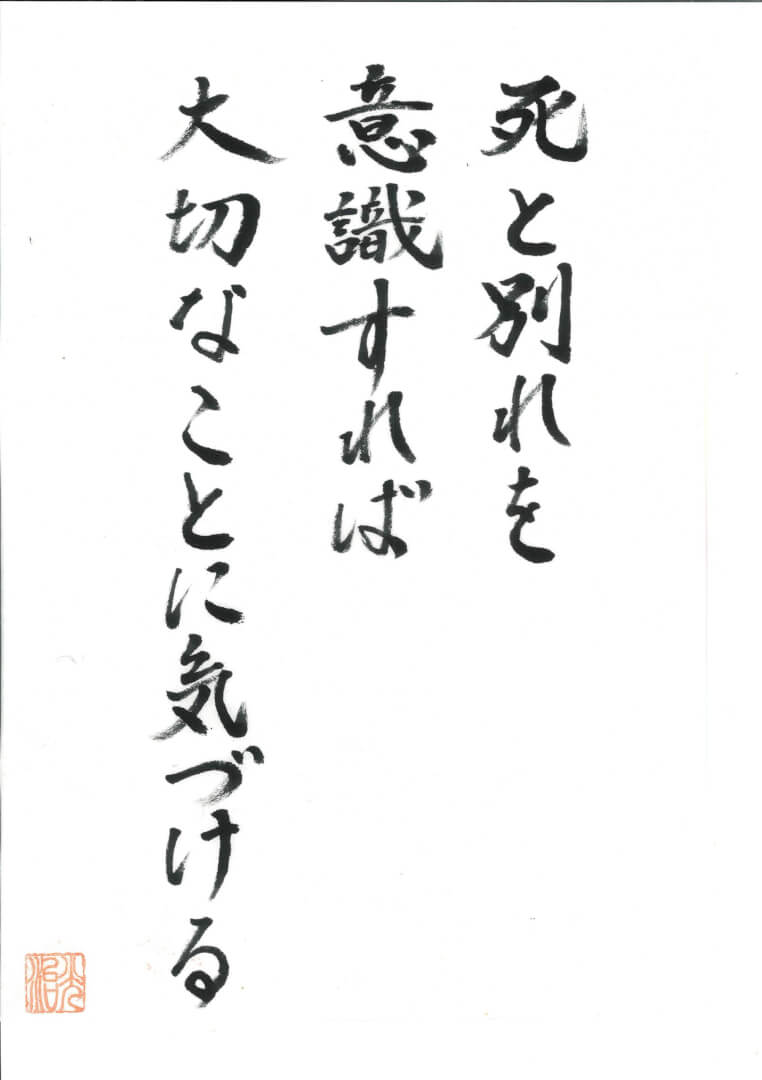 死と別れを
意識すれば
大切なことに気づける